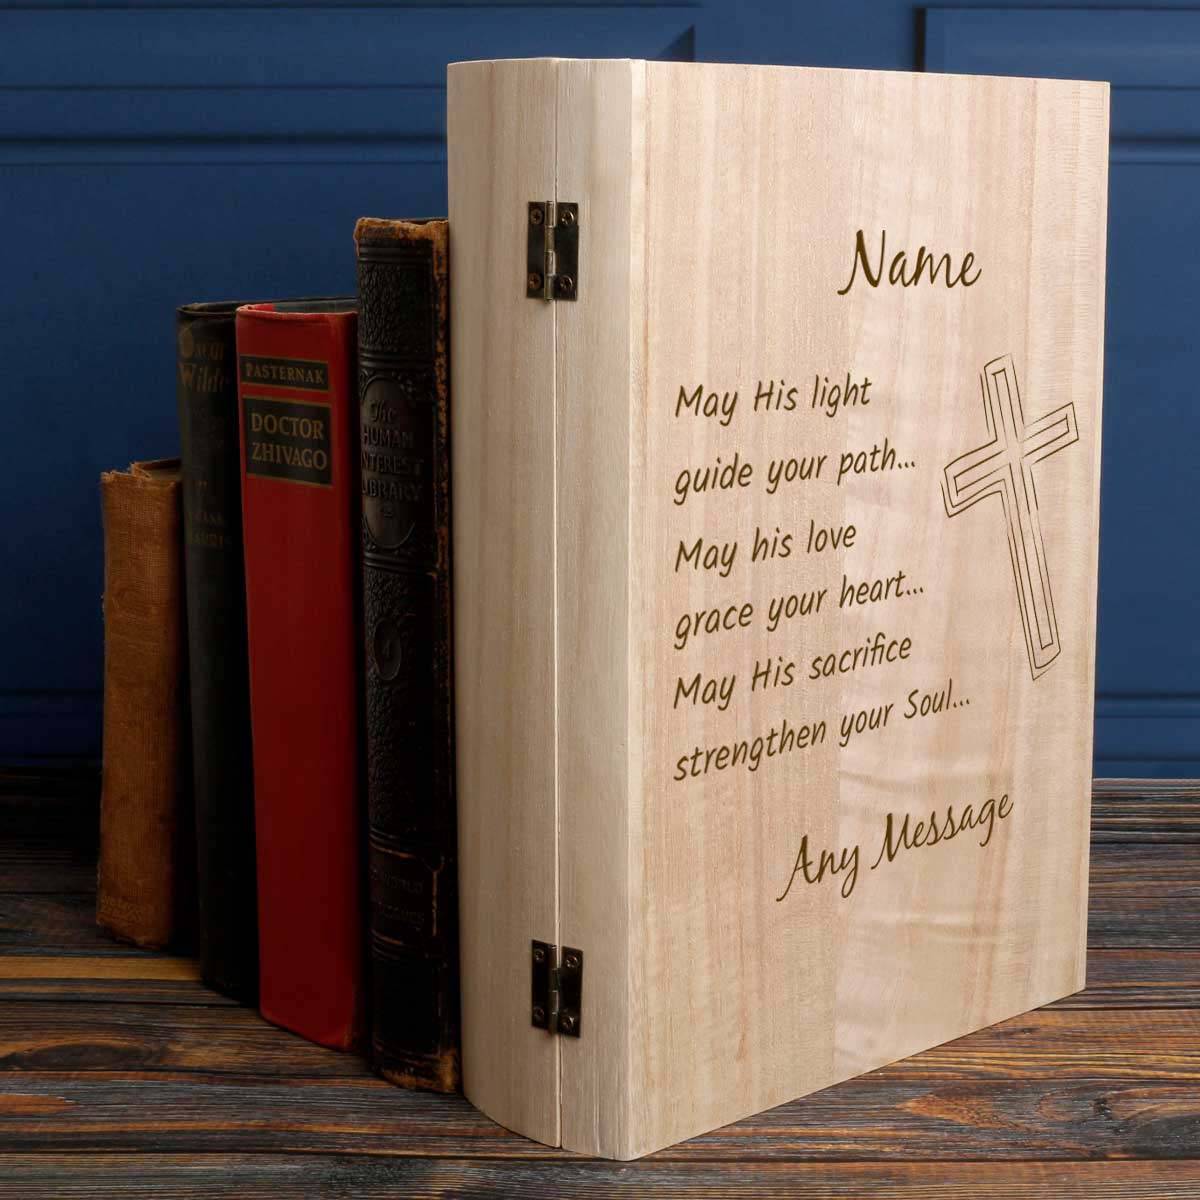 Oscar
Wilde
PASTERNAK
DOCTOR
ZHIVAGO
The
HUMAN
INTEREST
LIBRARY
Name
May His light
guide your path...
May his love
grace your heart...
May His sacrifice
strengthen your Soul...
Any Message